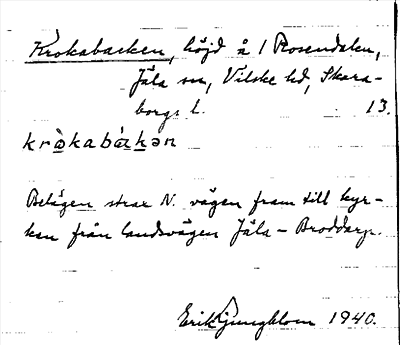 Krokabacken, höjd å 1 Rosendalen,
Jäla sn, Vilske hd, Skara-
borgs l. 13.
kròkabàkən
Belägen strax N. vägen fram till kyr-
kan från landsvägen Jäla - Broddarp.
Erik Ljungblom 1940.